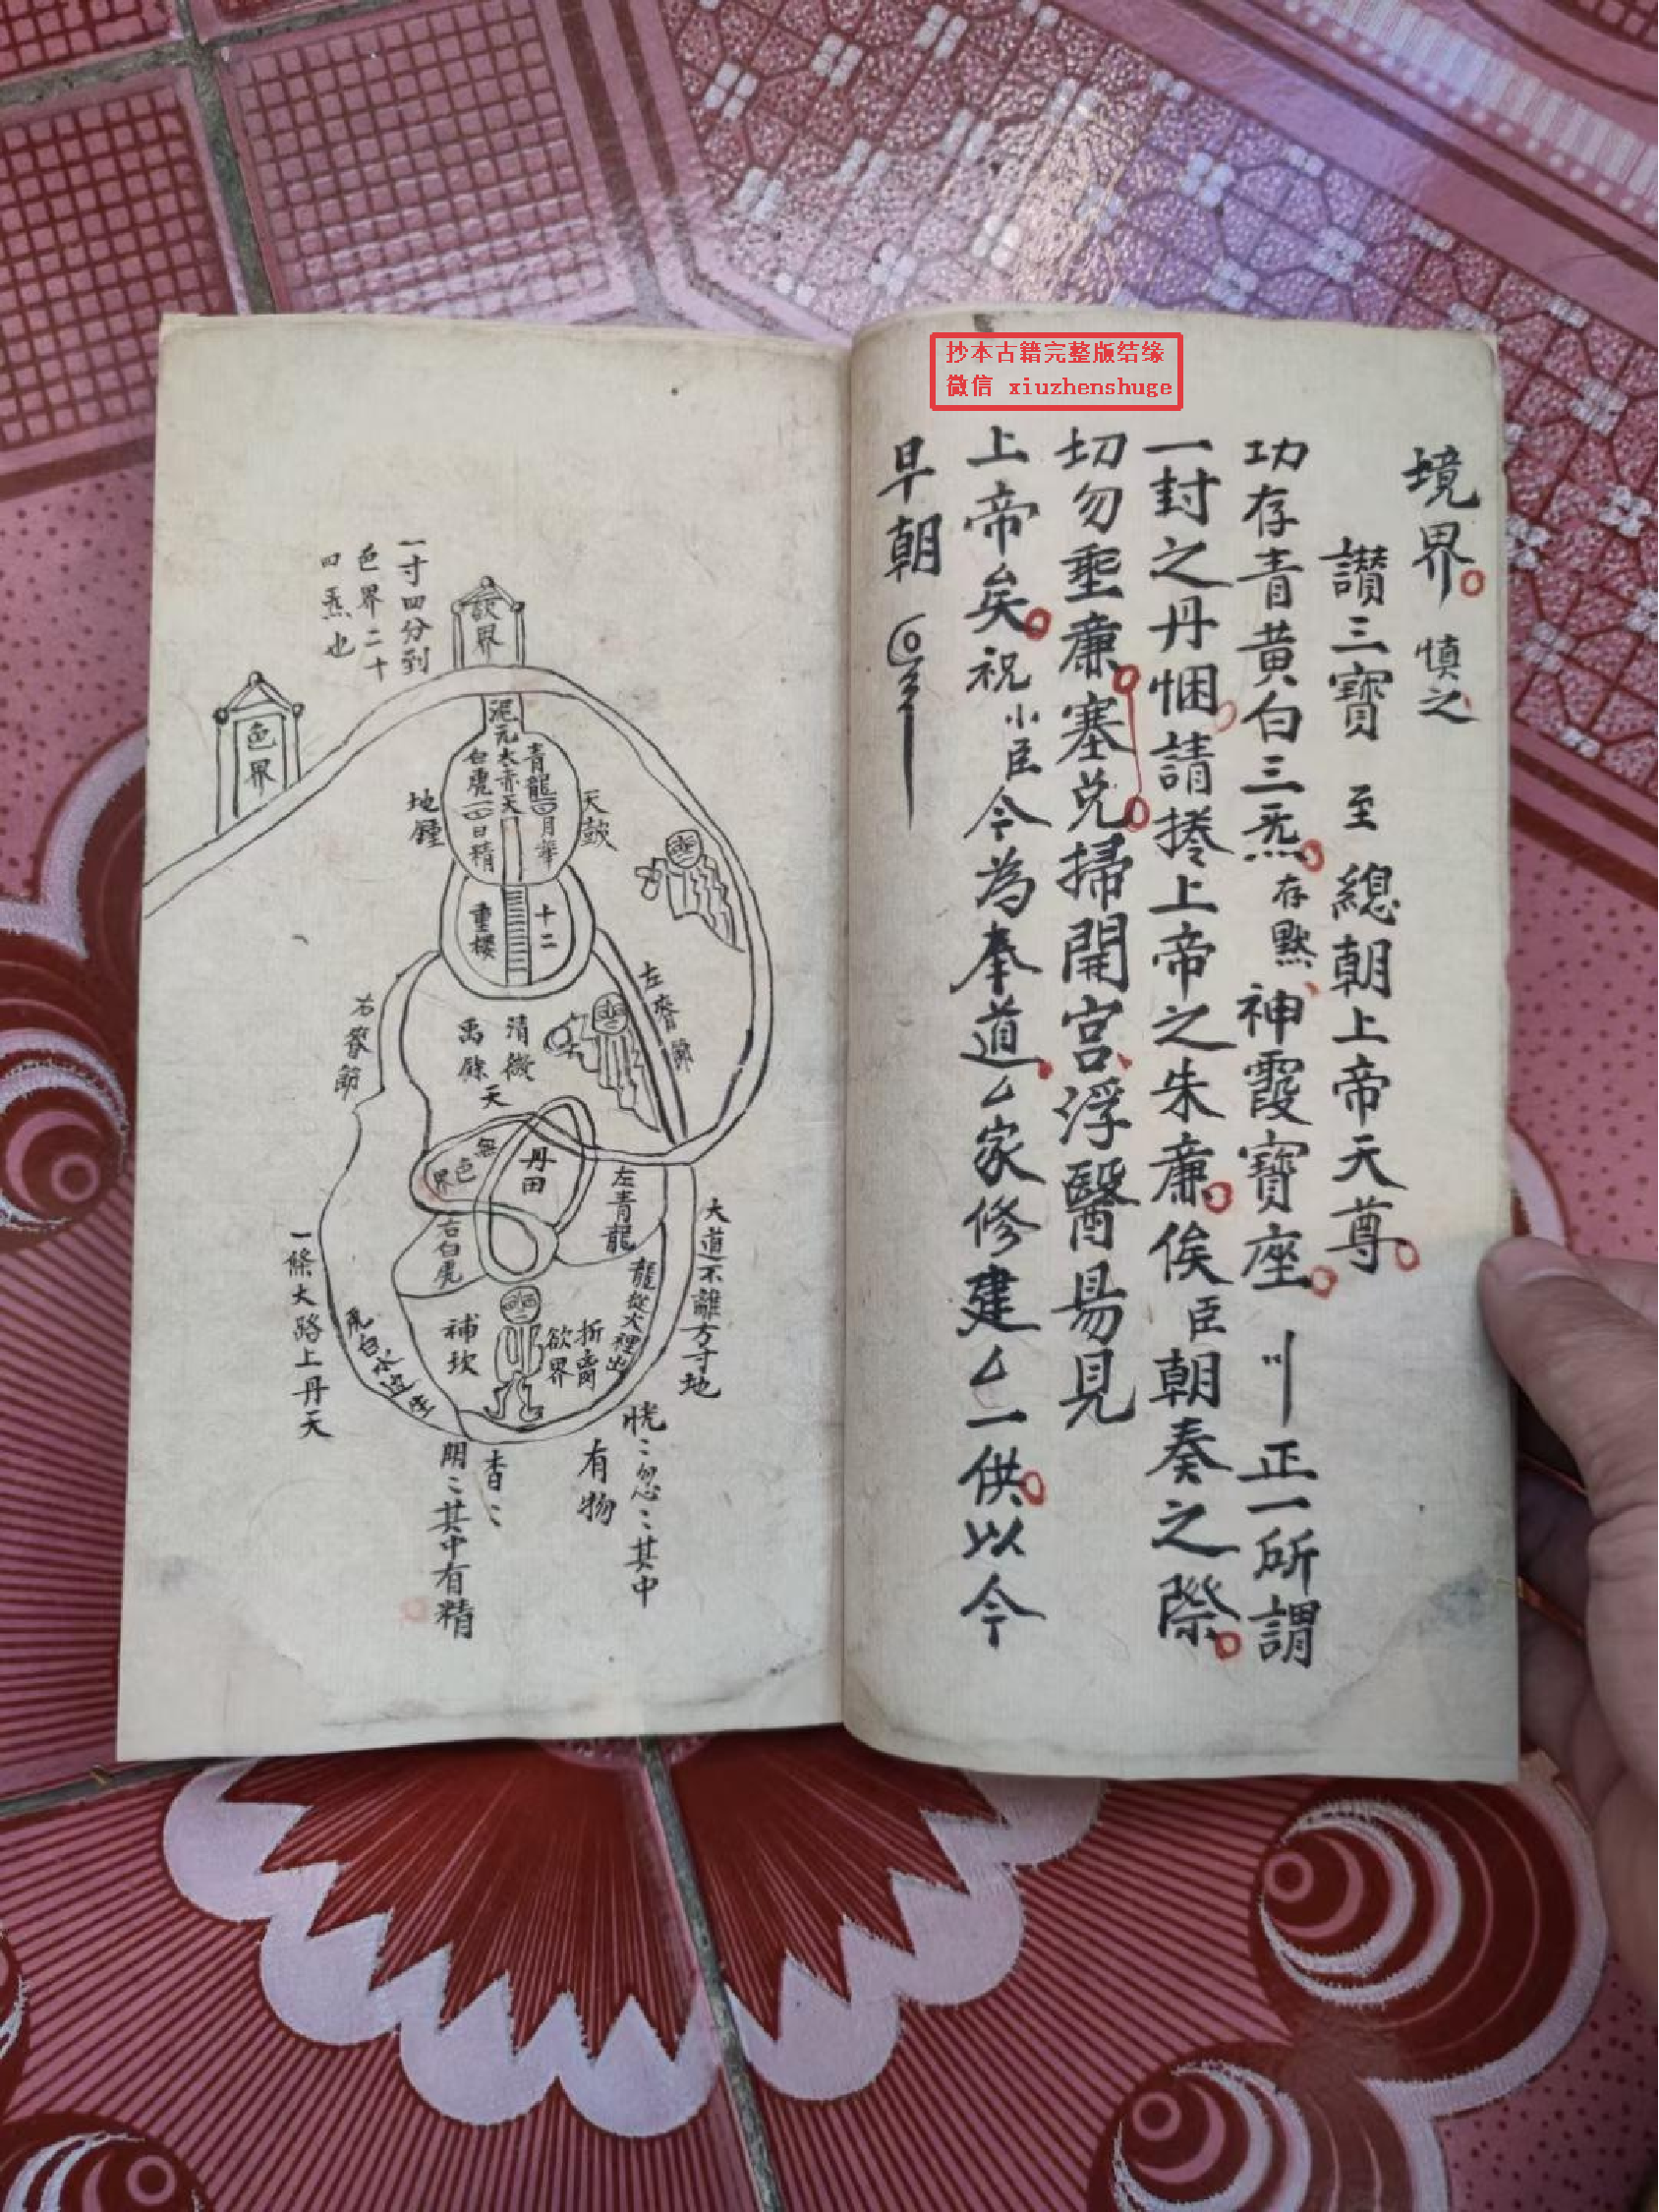 抄本古籍完整版结缘
微信 xiuzhenshuge
境界 慎之
讚三寶 至 總朝上帝天尊
功存青黃白三炁 存默 神霞寶座 正一所謂
一封之丹悃請捲上帝之朱㢘俟臣朝奏之際
切勿垂㢘塞兌掃開宮浮翳易見
上帝矣祝小臣今為奉道厶家修建厶一供以今
早朝
一寸四分到
色界二十
四炁也
色界
泥元太赤天
青龍 月華
白虎 日精
天鼓
地鐘
十二
重樓
左脊節
清微
禹餘
天
丹田
無色界
左青龍
右白虎
龍從火裡出
大道不離方寸地
一條大路上丹天
補坎
折离
欲界
恍〻忽〻其中
有物
杳〻
明〻其中有精